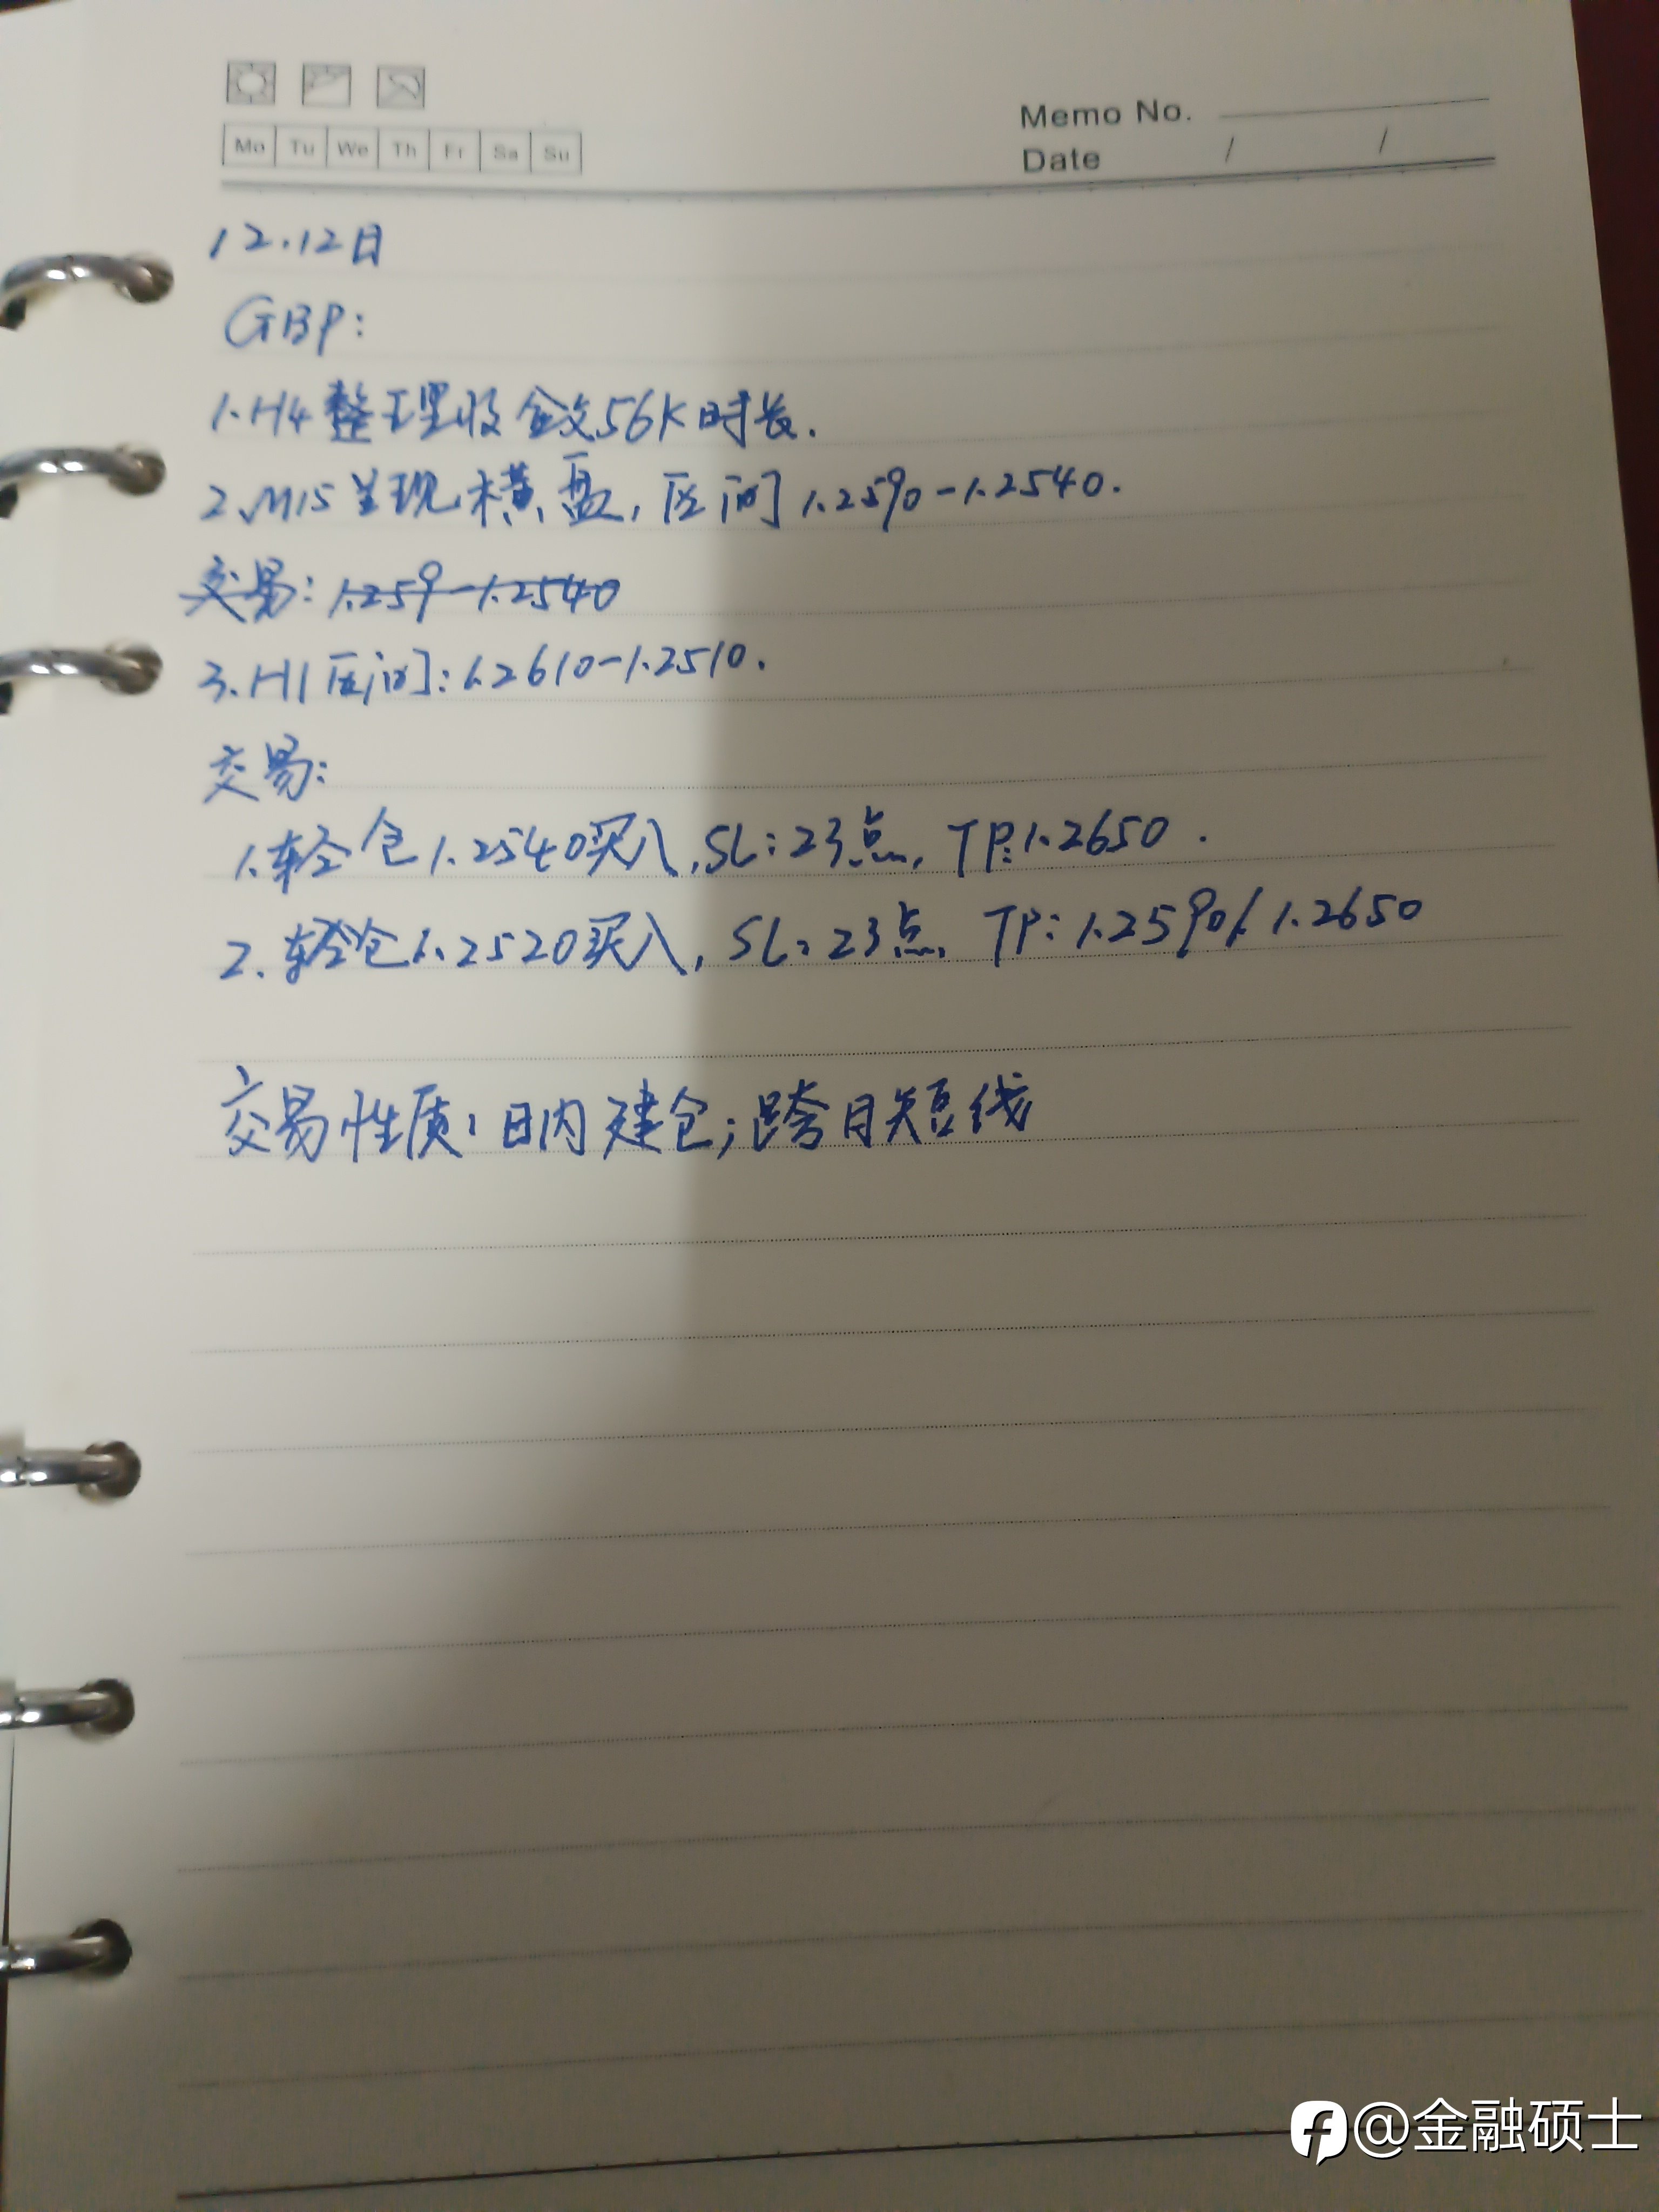 Memo No.
Mo Tu We Th Fr Sa Su
Date / /
12.12日
GBP:
1.H4整理收敛56K时长.
2.M15呈现横盘,区间1.2590-1.2540.
交易:1.259-1.2540
3.H1区间:1.2610-1.2510.
交易:
1.轻仓1.2540买入,SL:23点,TP:1.2650.
2.轻仓1.2520买入,SL:23点,TP:1.2590/1.2650
交易性质:日内建仓;跨日短线
@金融硕士